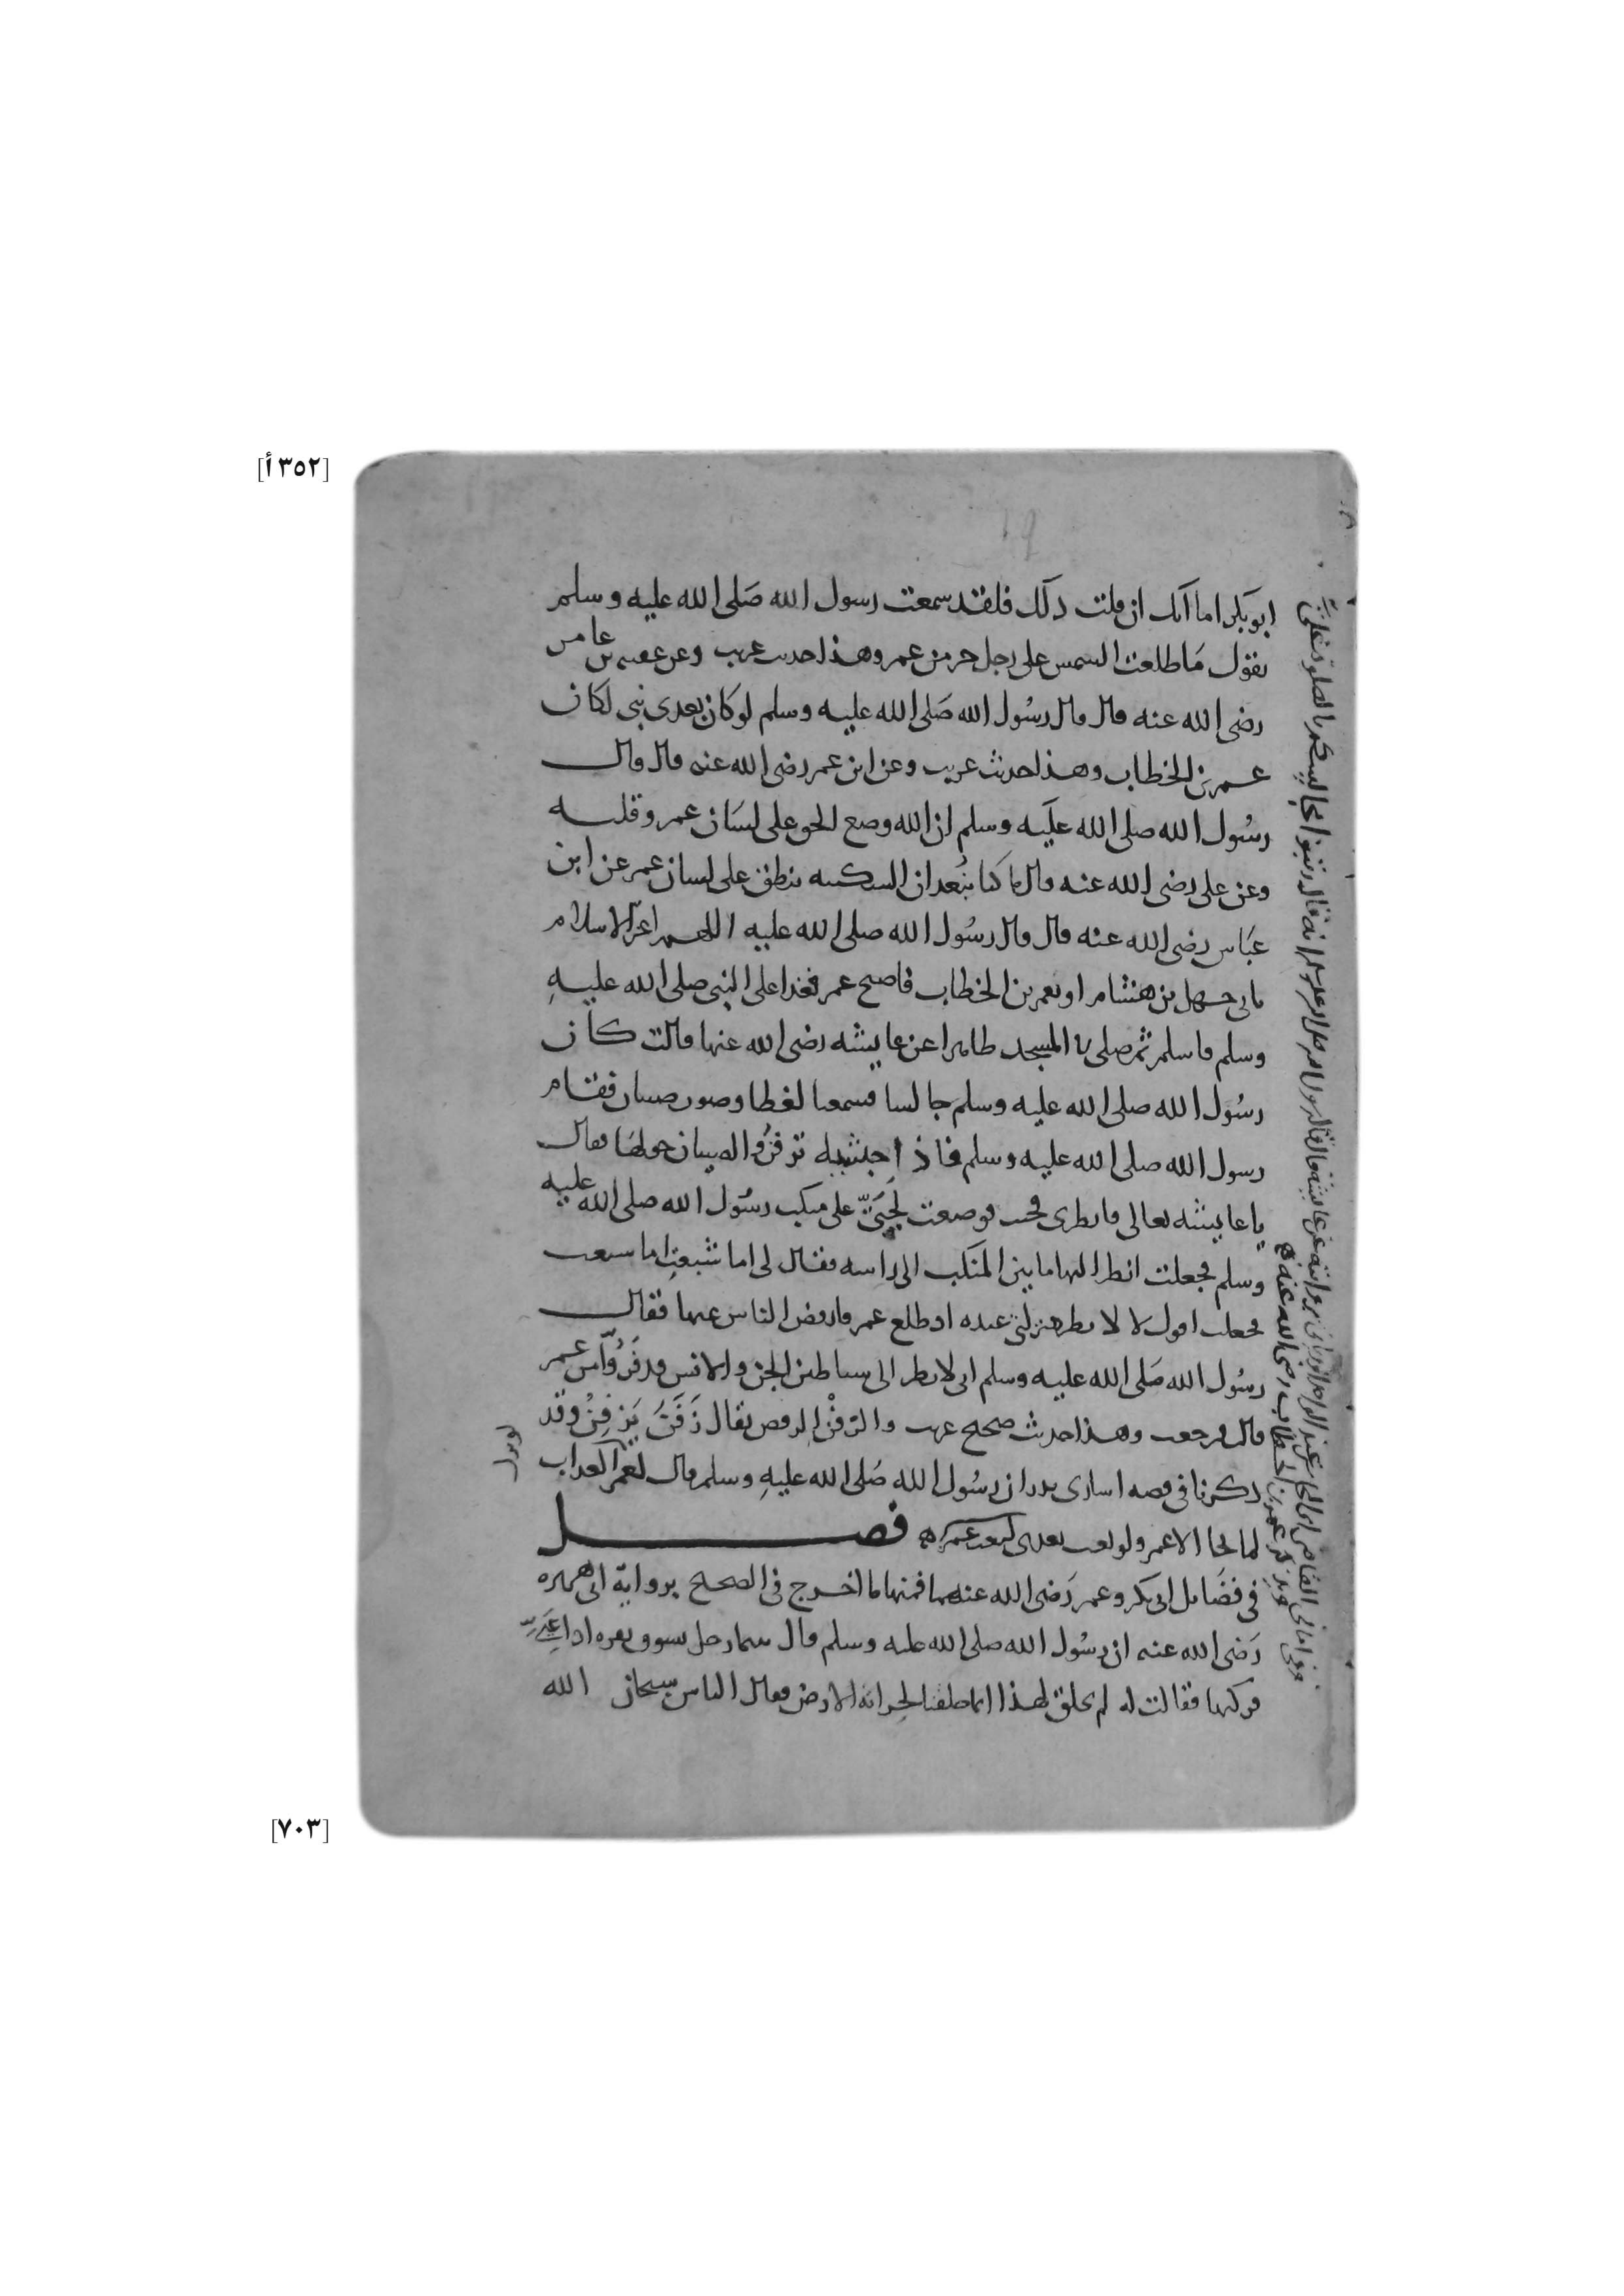 [٣٥٢ أ]
ابو بكر اما انك ان قلت ذلك فلقد سمعت رسول الله صلى الله عليه وسلم
يقول ما طلعت الشمس على رجل خير من عمر وهذا حديث غريب وعن عقبه بن عامر
رضى الله عنه قال قال رسول الله صلى الله عليه وسلم لو كان بعدى نبى لكان
عمر بن الخطاب وهذا حديث غريب وعن ابن عمر رضى الله عنه قال قال
رسول الله صلى الله عليه وسلم ان الله وضع الحق على لسان عمر وقلبه
وعن على رضى الله عنه قال ما كنا نبعد ان السكينه تنطق على لسان عمر عن ابن
عباس رضى الله عنه قال قال رسول الله صلى الله عليه اللهم اعز الاسلام
بابى جهل بن هشام او بعمر بن الخطاب فاصبح عمر فغدا على النبى صلى الله عليه
وسلم فاسلم ثم صلى فى المسجد ظاهرا عن عايشه رضى الله عنها قالت كان
رسول الله صلى الله عليه وسلم جالسا فسمعنا لغطا وصوت صبيان فقام
رسول الله صلى الله عليه وسلم فاذا حبشيه تزفن والصبيان حولها فقال
يا عايشه تعالى فانظرى فجيت فوضعت لحيى على منكب رسول الله صلى الله عليه
وسلم فجعلت انظر اليها ما بين المنكب الى راسه فقال لى اما شبعت اما شبعت
فجعلت اقول لا لانظر منزلتى عنده اذ طلع عمر فارفض الناس عنها فقال
رسول الله صلى الله عليه وسلم انى لانظر الى شياطين الجن والانس قد فروا من عمر
قالت فرجعت وهذا حديث صحيح غريب والزفن الرقص يقال زفن يزفن وقد
ذكرنا فى قصه اسارى بدر ان رسول الله صلى الله عليه وسلم قال لعمر العذاب
لو نزل
لما نجا الا عمر ولو بعث بعدى لبعث عمر
فصل
فى فضايل ابى بكر وعمر رضى الله عنهما فمنها ما اخرج فى الصحيح برواية ابى هريره
رضى الله عنه ان رسول الله صلى الله عليه وسلم قال بينما رجل يسوق بقره اذ اعيى
فركبها فقالت له لم نخلق لهذا انما خلقنا لحراثه الارض فقال الناس سبحان الله
عمر بن الخطاب رضى الله عنه
[٧٠٣]